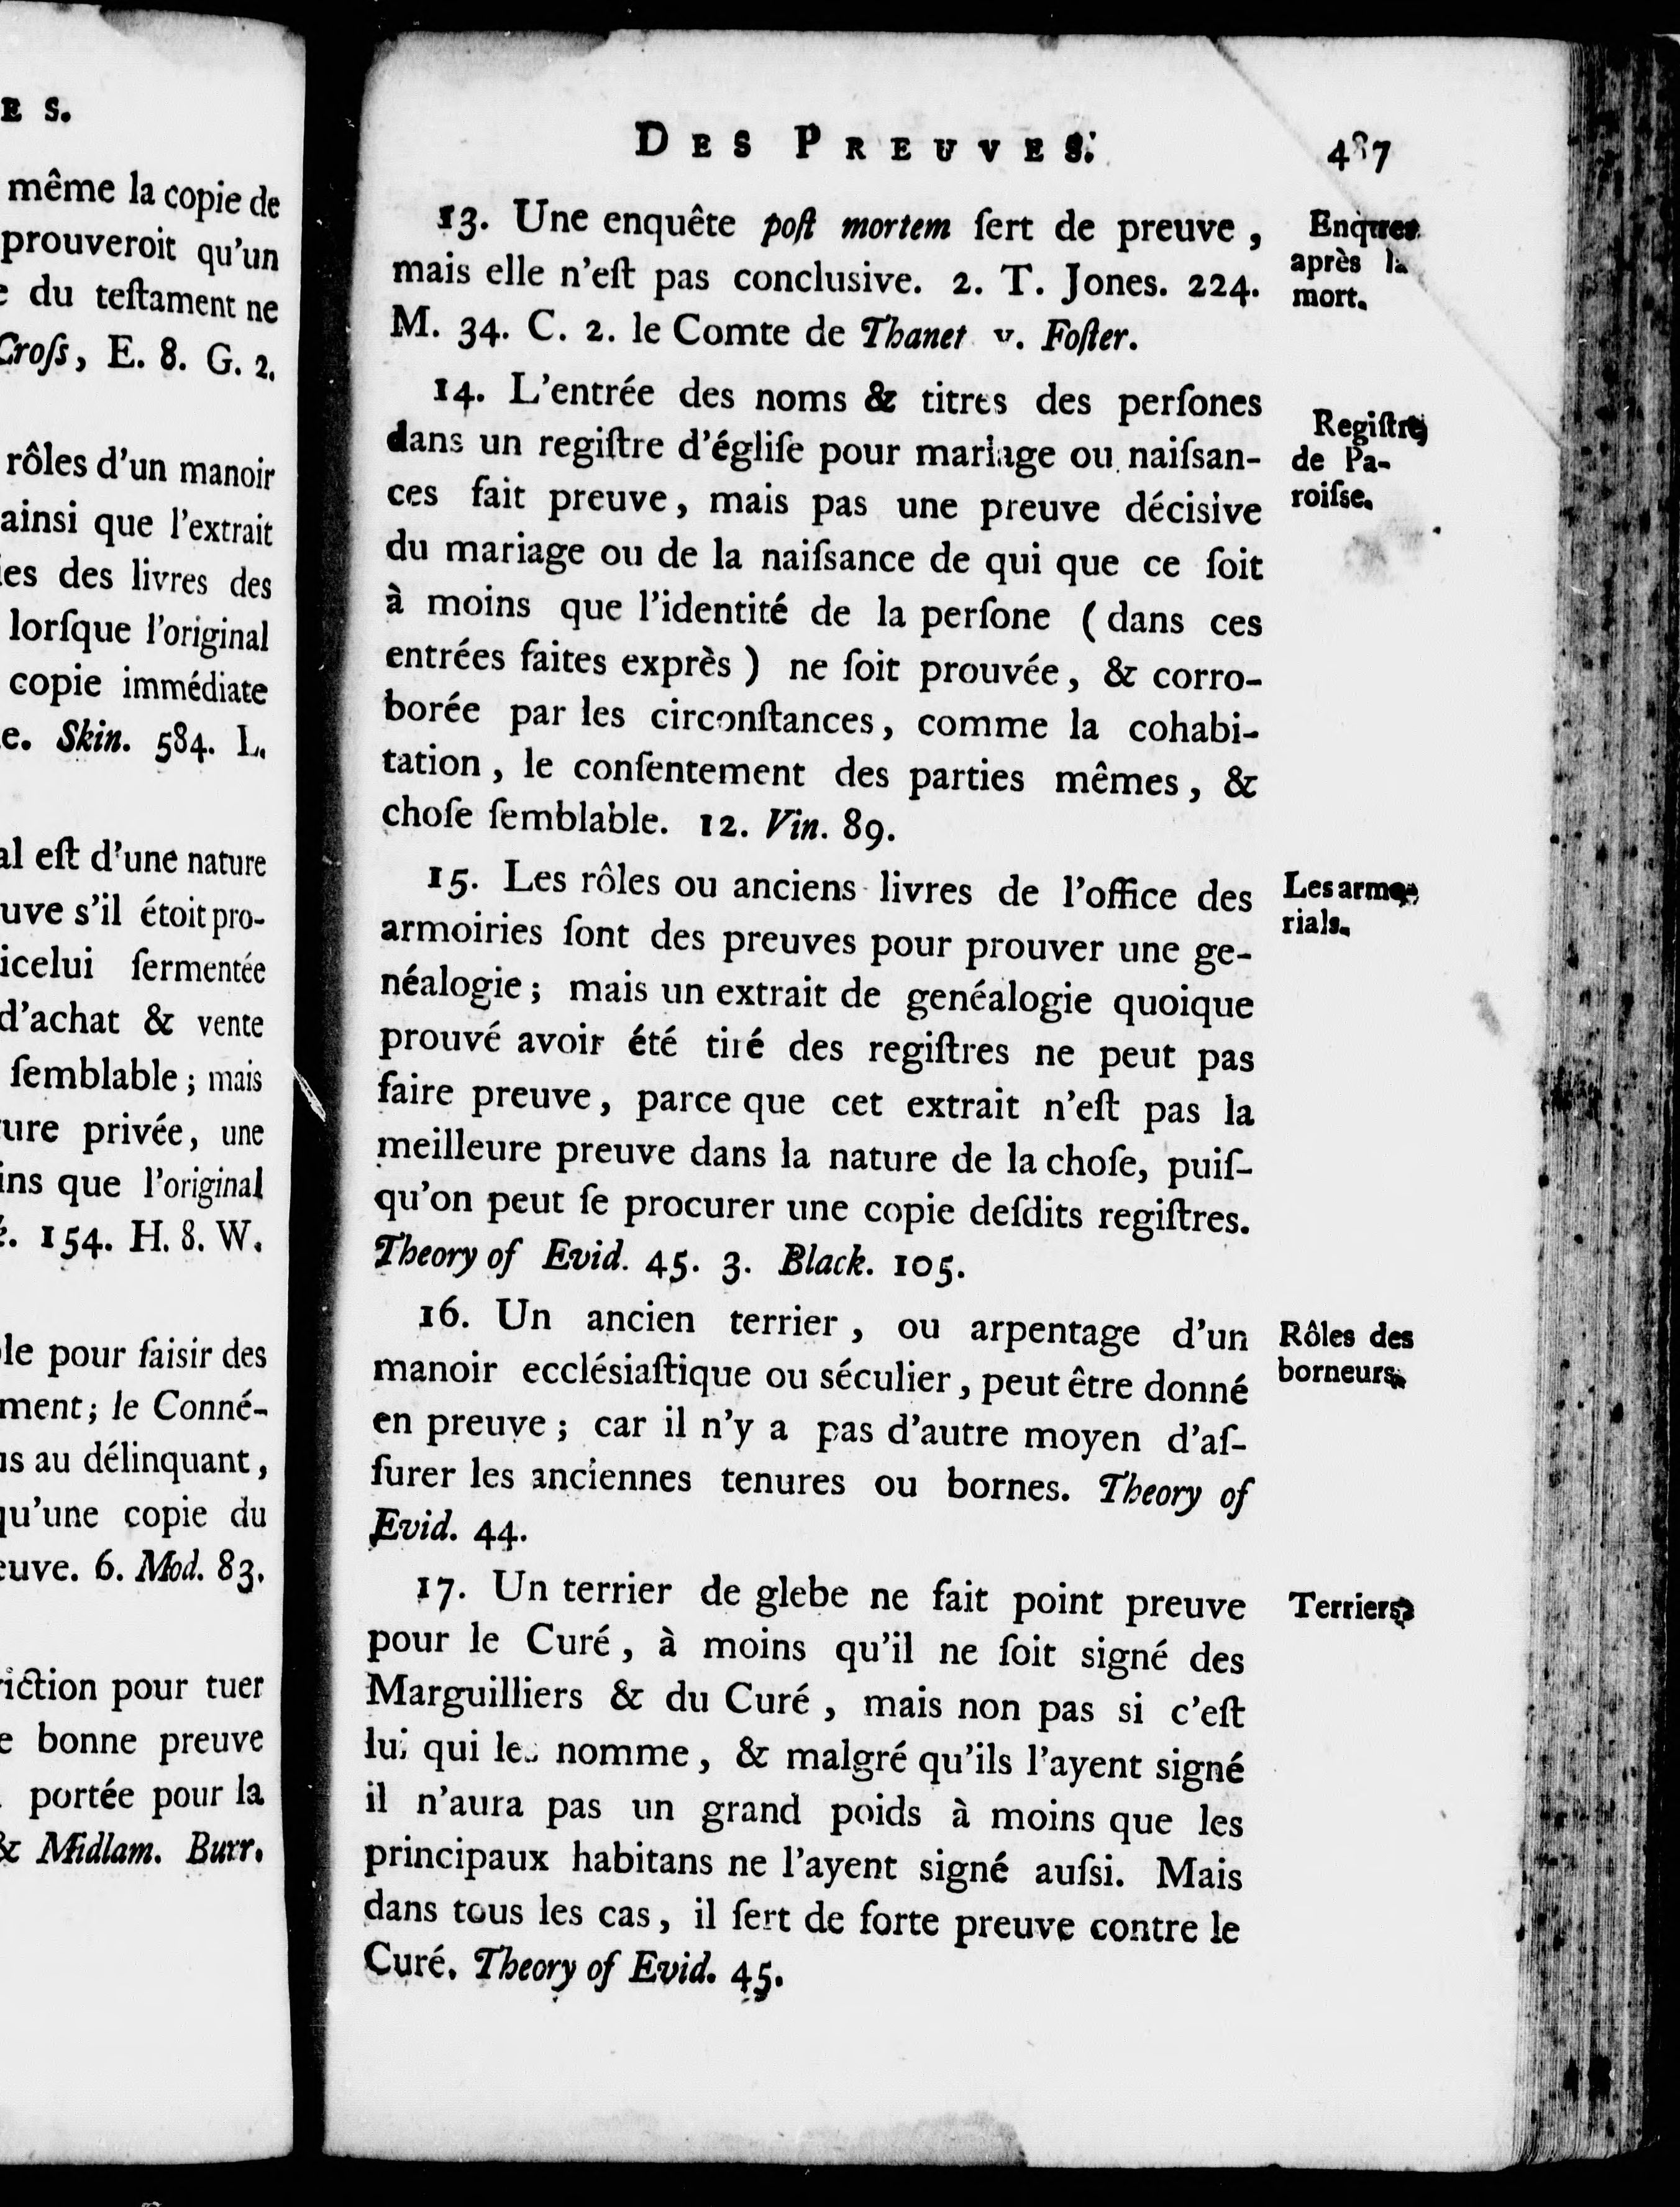 E S.
même la copie de
prouveroit qu'un
du teſtament ne
Croſs, E. 8. G. 2.
rôles d'un manoir
ainsi que l'extrait
des livres des
lorſque l'original
copie immédiate
Skin. 584. L.
eſt d'une nature
s'il étoit pro-
icelui ſermentée
d'achat & vente
ſemblable ; mais
privée, une
que l'original
154. H. 8. W.
pour ſaisir des
le Conné-
au délinquant,
qu'une copie du
6. Mod. 83.
pour tuer
bonne preuve
portée pour la
& Midlam. Burr.
DES PREUVES.
487
13. Une enquête poſt mortem ſert de preuve ,
mais elle n'eſt pas conclusive. 2. T. Jones. 224.
M. 34. C. 2. le Comte de Thanet v. Foſter.
Enquete
après la
mort.
14. L'entrée des noms & titres des perſones
dans un regiſtre d'égliſe pour mariage ou naiſsan-
ces fait preuve, mais pas une preuve décisive
du mariage ou de la naiſsance de qui que ce ſoit
à moins que l'identité de la perſone ( dans ces
entrées faites exprès ) ne ſoit prouvée, & corro-
borée par les circonſtances, comme la cohabi-
tation , le conſentement des parties mêmes , &
choſe ſemblable. 12. Vin. 89.
Regiſtre
de Pa-
roiſse.
15. Les rôles ou anciens livres de l'office des
armoiries ſont des preuves pour prouver une ge-
néalogie ; mais un extrait de genéalogie quoique
prouvé avoir été tiré des regiſtres ne peut pas
faire preuve, parce que cet extrait n'eſt pas la
meilleure preuve dans la nature de la choſe, puiſ-
qu'on peut ſe procurer une copie deſdits regiſtres.
Theory of Evid. 45. 3. Black. 105.
Les armo-
rials.
16. Un ancien terrier , ou arpentage d'un
manoir eccléſiaſtique ou séculier , peut être donné
en preuve ; car il n'y a pas d'autre moyen d'aſ-
ſurer les anciennes tenures ou bornes. Theory of
Evid. 44.
Rôles des
borneurs.
17. Un terrier de glebe ne fait point preuve
pour le Curé , à moins qu'il ne ſoit signé des
Marguilliers & du Curé , mais non pas si c'eſt
lui qui les nomme , & malgré qu'ils l'ayent signé
il n'aura pas un grand poids à moins que les
principaux habitans ne l'ayent signé auſsi. Mais
dans tous les cas , il ſert de forte preuve contre le
Curé. Theory of Evid. 45.
Terriers.